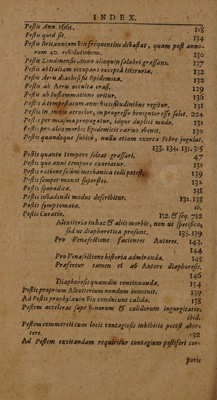 INDEX.
Pestis Ann. 1665. 118
Pestis quid sit. 134
Pestis Britanniam bis frequentius devastat, quam post annorum 40. revolutionem. 130
Pestis Londinensis Anno aliquin salubri grassans. 137
Pestis ablutam occupant excepta literaria. 132
Pestis Aeris diathesis Epidemica. 130
Pestis ab Aeris occulta
Pestis ab Inflammatione oritur. 136
Pestis à tempestatum ann: vicissitudinibus regitur. 131
Pestis in initio atrocior, in progressu benignior esse solet. 224
Pestis per miasma propagatur, idque duplici modo. 131
Pestis præ aliis morbis Epidemicis rarius evenit. 130
Pestis quandoque subitò, nulla etiam exorta febre jugulat.
133. 134. 135
Pestis quanto tempore soleat grassari. 47
Pestis quo anni tempore exoriatur. 131
Pestis ratione sciam mechanica tolli potest. 131
Pestis semper manet superstes. 131
Pestis sporadica. 131
Pestis inbadendi modus describitur. 131. 138
Pestis symptomata. ib.
Pestis Curatio. 152. & seq. 712
Alexiteria in hac & aliis morbis, non ut specifica, sed ut diaphoretica prosunt. 135. 139
Pro Venæsectione facientes Autores. 143. 144
Pro Venæsectione historia admiranda. 145
Præfertur tamen et ab Autore diaphoresis. 146
Diaphoresis quamdiu continuanda. 154
Pestis proprium Alexiterium nondum innotuit. 139
Ad Pestis prophylaxin bix conducunt calida. 138
Pestem accelerat sape vinorum & calidorum ingurgitatio, ibid.
Pestem commercii cum locis contagiosis inhibitio potest abertere. 132
Ad Pestem excitandam requiritur contagium pestiferi cor-
poris